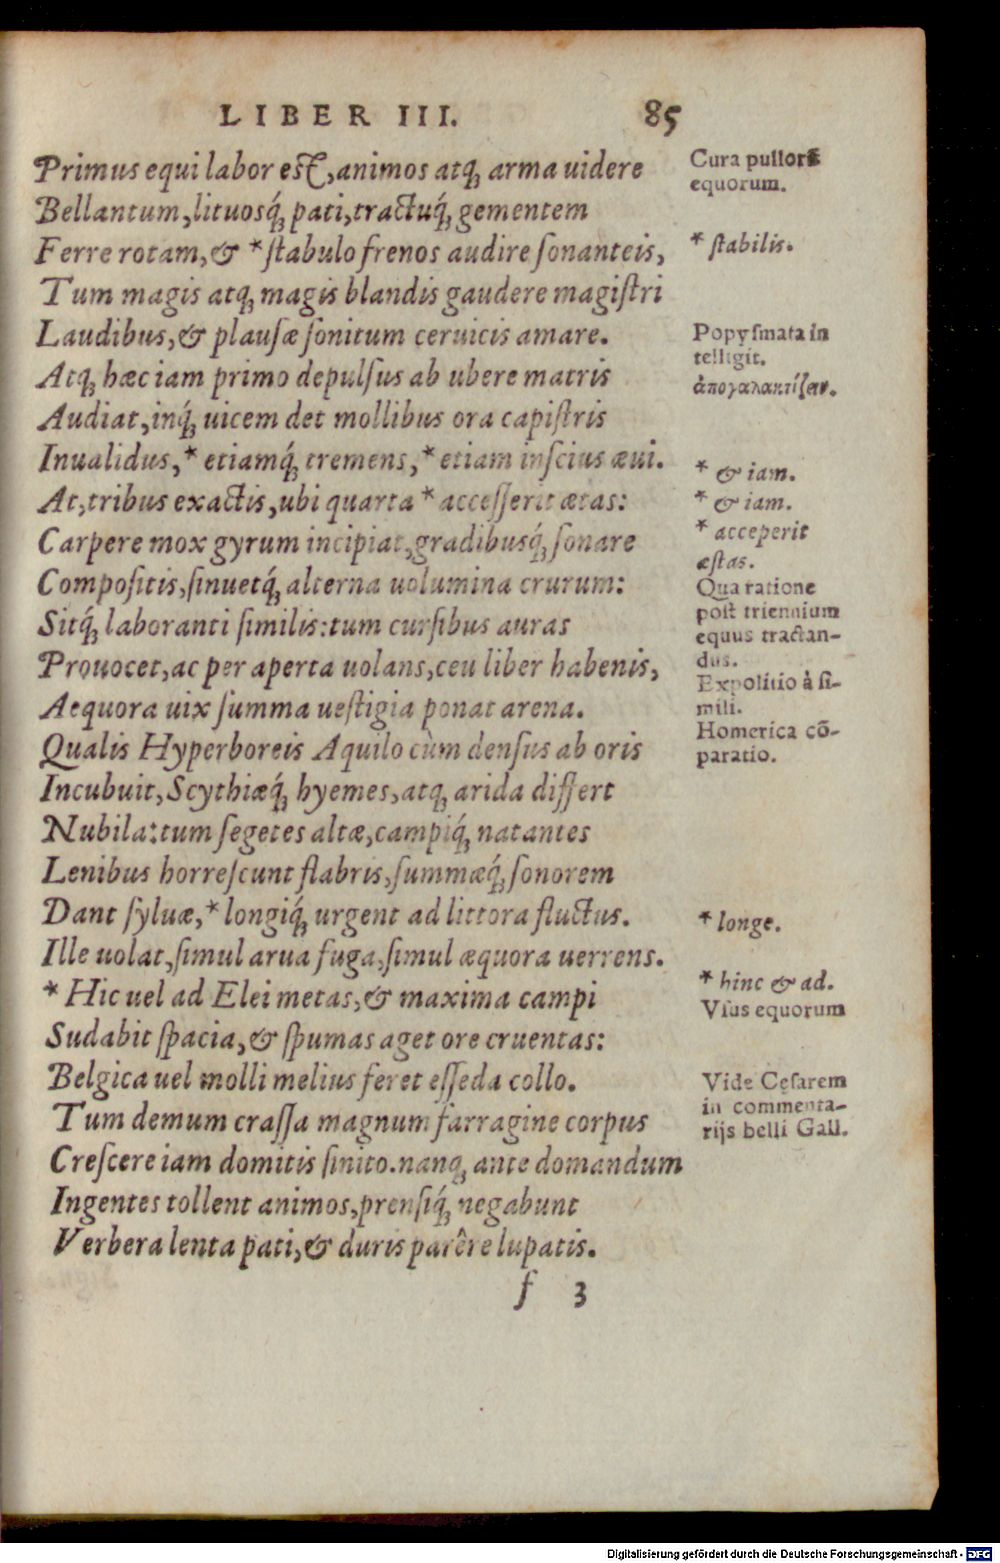 LIBER III. 85
Primus equi labor est, animos atq; arma uidere
Bellantum, lituosq́; pati, tractuq́; gementem
Ferre rotam, & *ſtabulo frenos audire ſonanteis,
Tum magis atq; magis blandis gaudere magiſtri
Laudibus, & plauſæ ſonitum ceruicis amare.
Atq; hæc iam primo depulſus ab ubere matris
Audiat, inq́; uicem det mollibus ora capiſtris
Inualidus, * etiamq́; tremens, * etiam inſcius æui.
At, tribus exactis, ubi quarta * acceſſerit ætas:
Carpere mox gyrum incipiat, gradibusq́; ſonare
Compoſitis, ſinuetq́; alterna uolumina crurum:
Sitq́; laboranti ſimilis: tum curſibus auras
Prouocet, ac per aperta uolans, ceu liber habenis,
Aequora uix ſumma ueſtigia ponat arena.
Qualis Hyperboreis Aquilo cùm denſus ab oris
Incubuit, Scythiæq́; hyemes, atq; arida differt
Nubila: tum ſegetes altæ, campiq́; natantes
Lenibus horreſcunt flabris, ſummæq́; ſonorem
Dant ſyluæ, * longiq́; urgent ad littora fluctus.
Ille uolat, ſimul arua fuga, ſimul æquora uerrens.
* Hic uel ad Elei metas, & maxima campi
Sudabit ſpacia, & ſpumas aget ore cruentas:
Belgica uel molli melius feret eſſeda collo.
Tum demum craſſa magnum farragine corpus
Creſcere iam domitis ſinito. nanq; ante domandum
Ingentes tollent animos, prenſiq́; negabunt
Verbera lenta pati, & duris parêre lupatis.
f 3
Cura pullorũ
equorum.
* ſtabilis.
Popyſmata in
telligit.
ἀπογαλακτίζειν.
* & iam.
* & iam.
* acceperit
æſtas.
Qua ratione
poſt triennium
equus tractan-
dus.
Expolitio à ſi-
mili.
Homerica cō-
paratio.
* longe.
* hinc & ad.
Vſus equorum
Vide Cęſarem
in commenta-
rijs belli Gall.
Digitalisierung gefördert durch die Deutsche Forschungsgemeinschaft - DFG